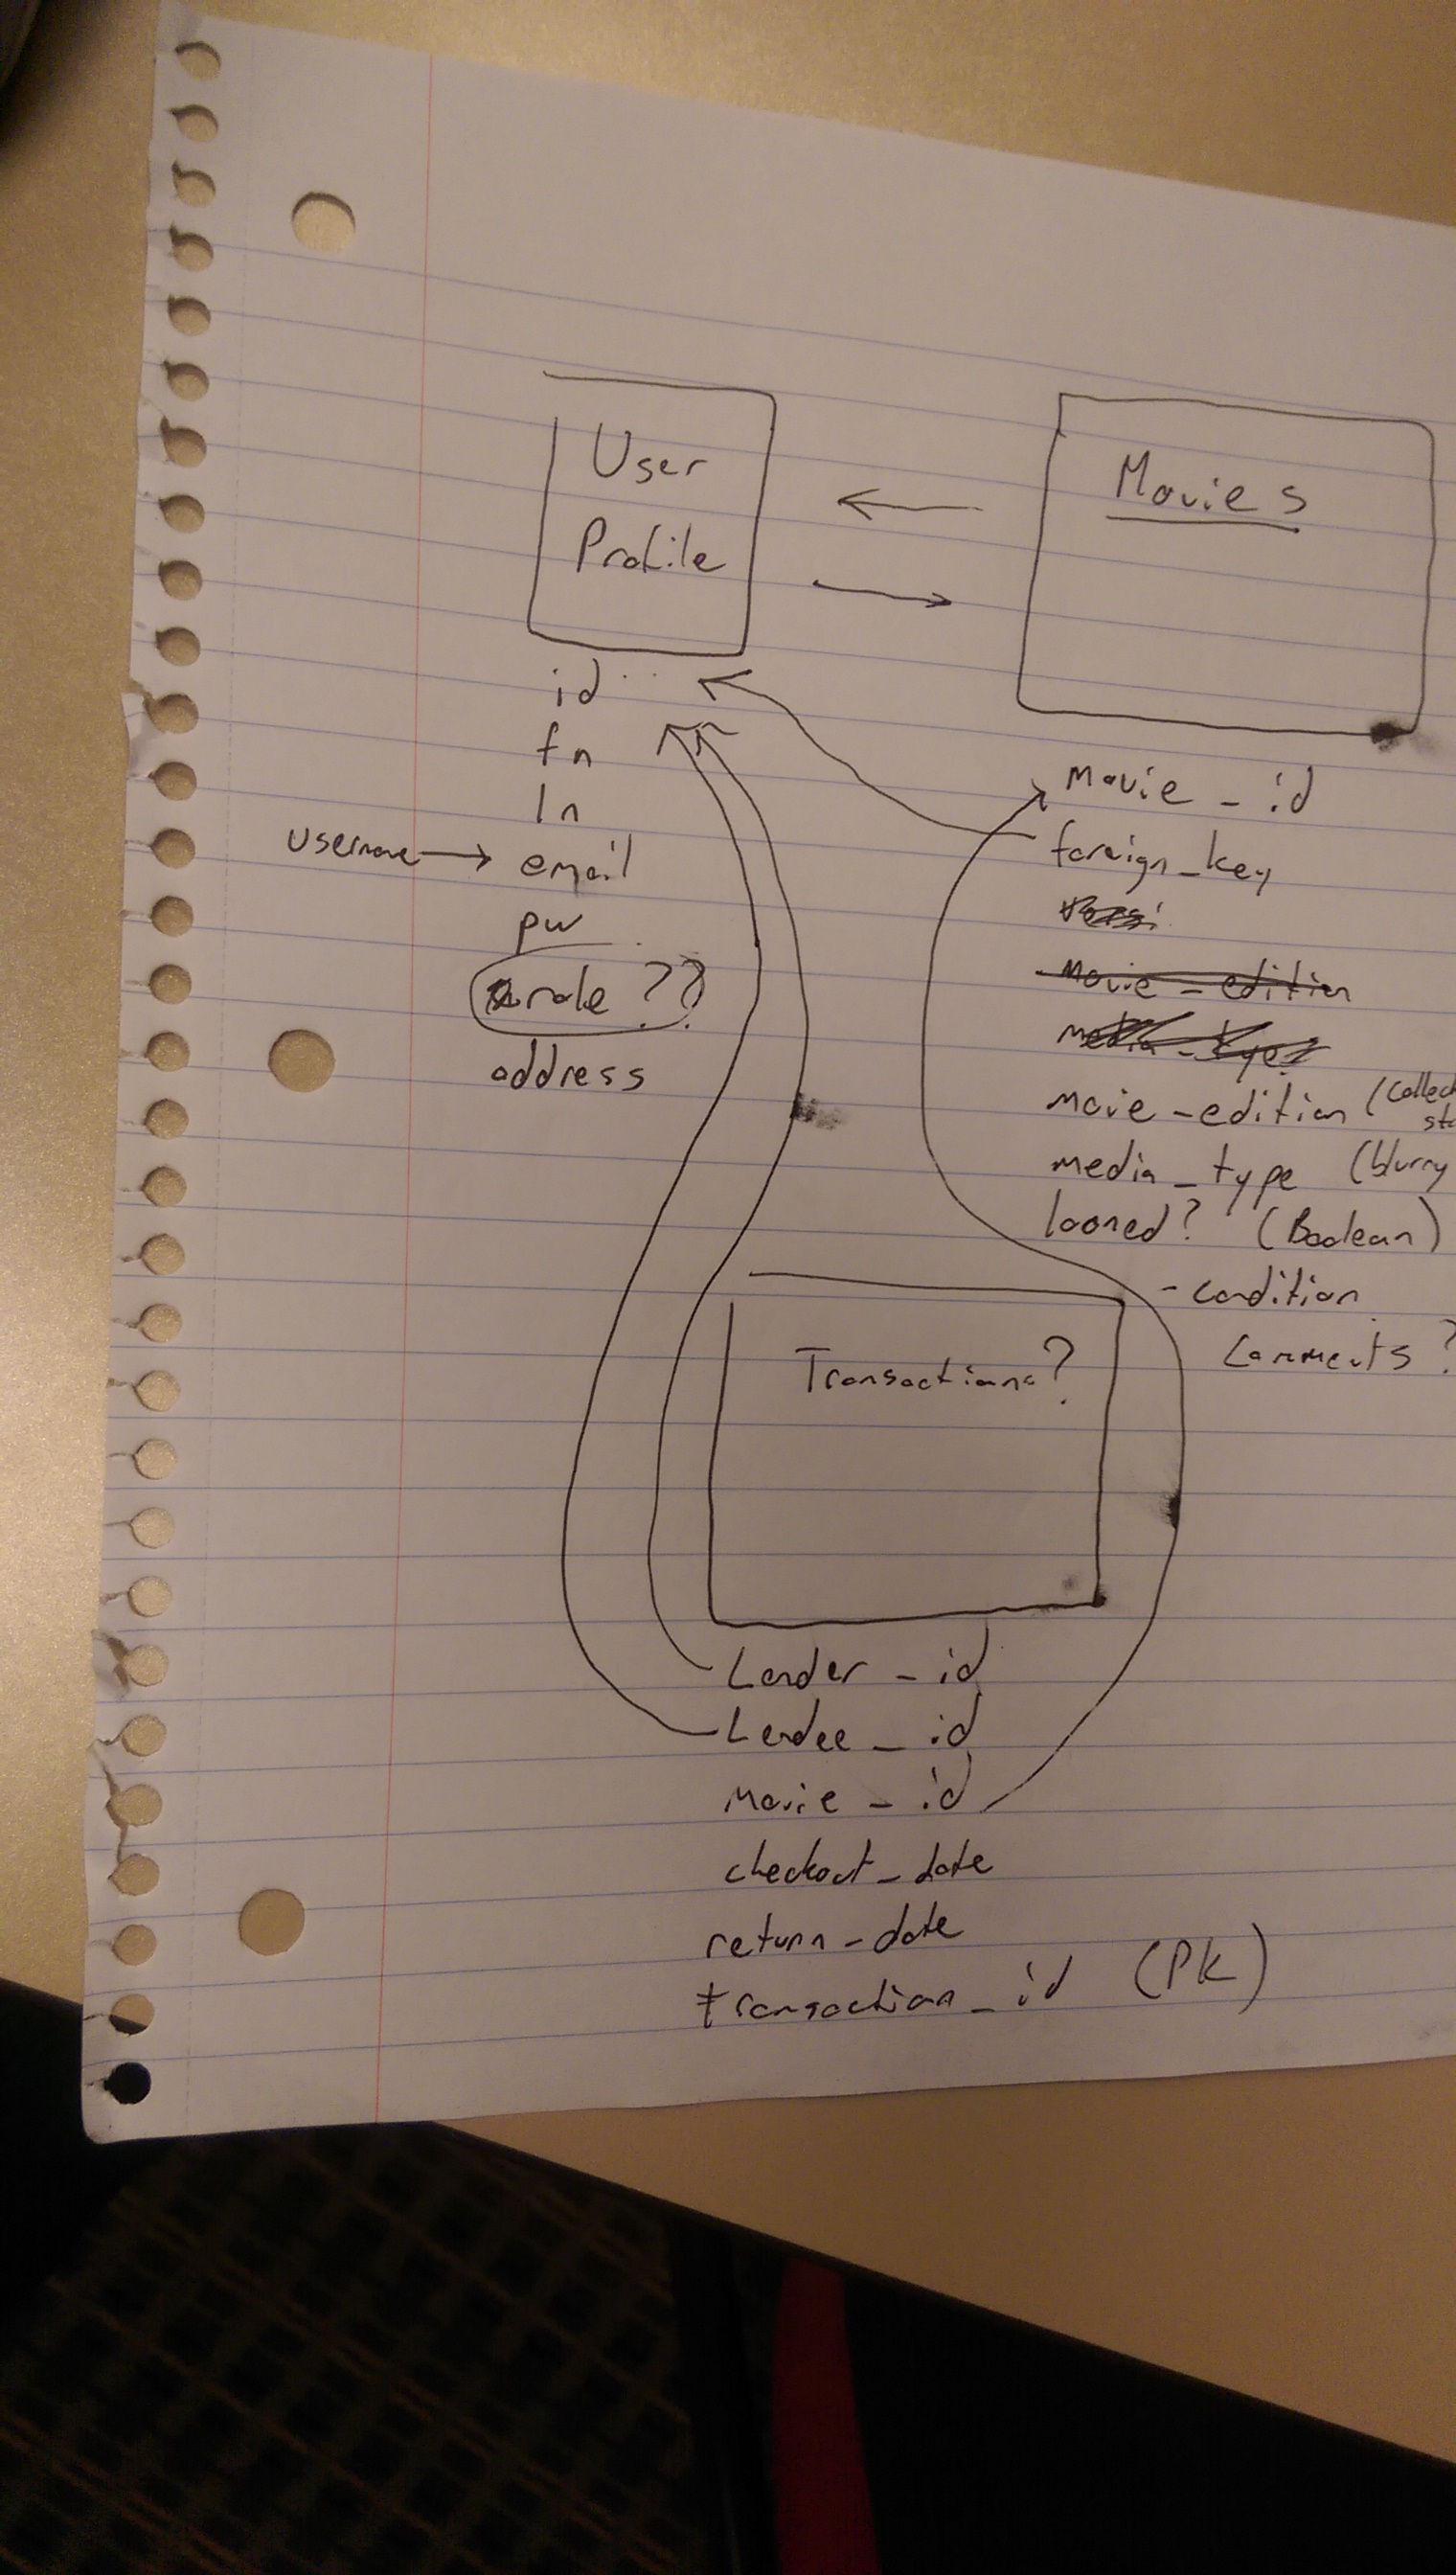 User
Profile
id
fn
ln
username
email
pw
role ??
address
Movies
movie_id
foreign_key
movie_edition
media_type
movie_edition (collec
media_type (blurry
loaned? (Boolean)
- condition
comments?
Transactions?
Lender_id
Lendee_id
movie_id
checkout_date
return_date
transaction_id (PK)